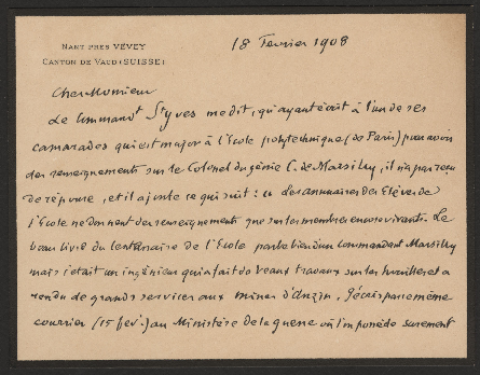 NANT PRÈS VEVEY
CANTON DE VAUD (SUISSE)
18 Fevrier 1908
Cher Monsieur
Le Command.t St yves me dit, qu'ayant écrit à l'un de ses
camarades qui est major à l'École polytechnique (de Paris) pour avoir
des renseignements sur le Colonel du génie C. de Marsilly, il n'a pas reçu
de réponse, et il ajoute ce qui suit : Les annuaires des Elèves de
l'Ecole ne donnent des renseignements que sur les membres encore vivants. Le
beau livre du Centenaire de l'Ecole parle bien d'un commandant Marsilly
mais c'était un ingénieur qui a fait de beaux travaux sur les houilles et a
rendu de grands services aux mines d'Anzin. J'écris par le même
courrier (15 fev.) au Ministère de la guerre où l'on possède surement